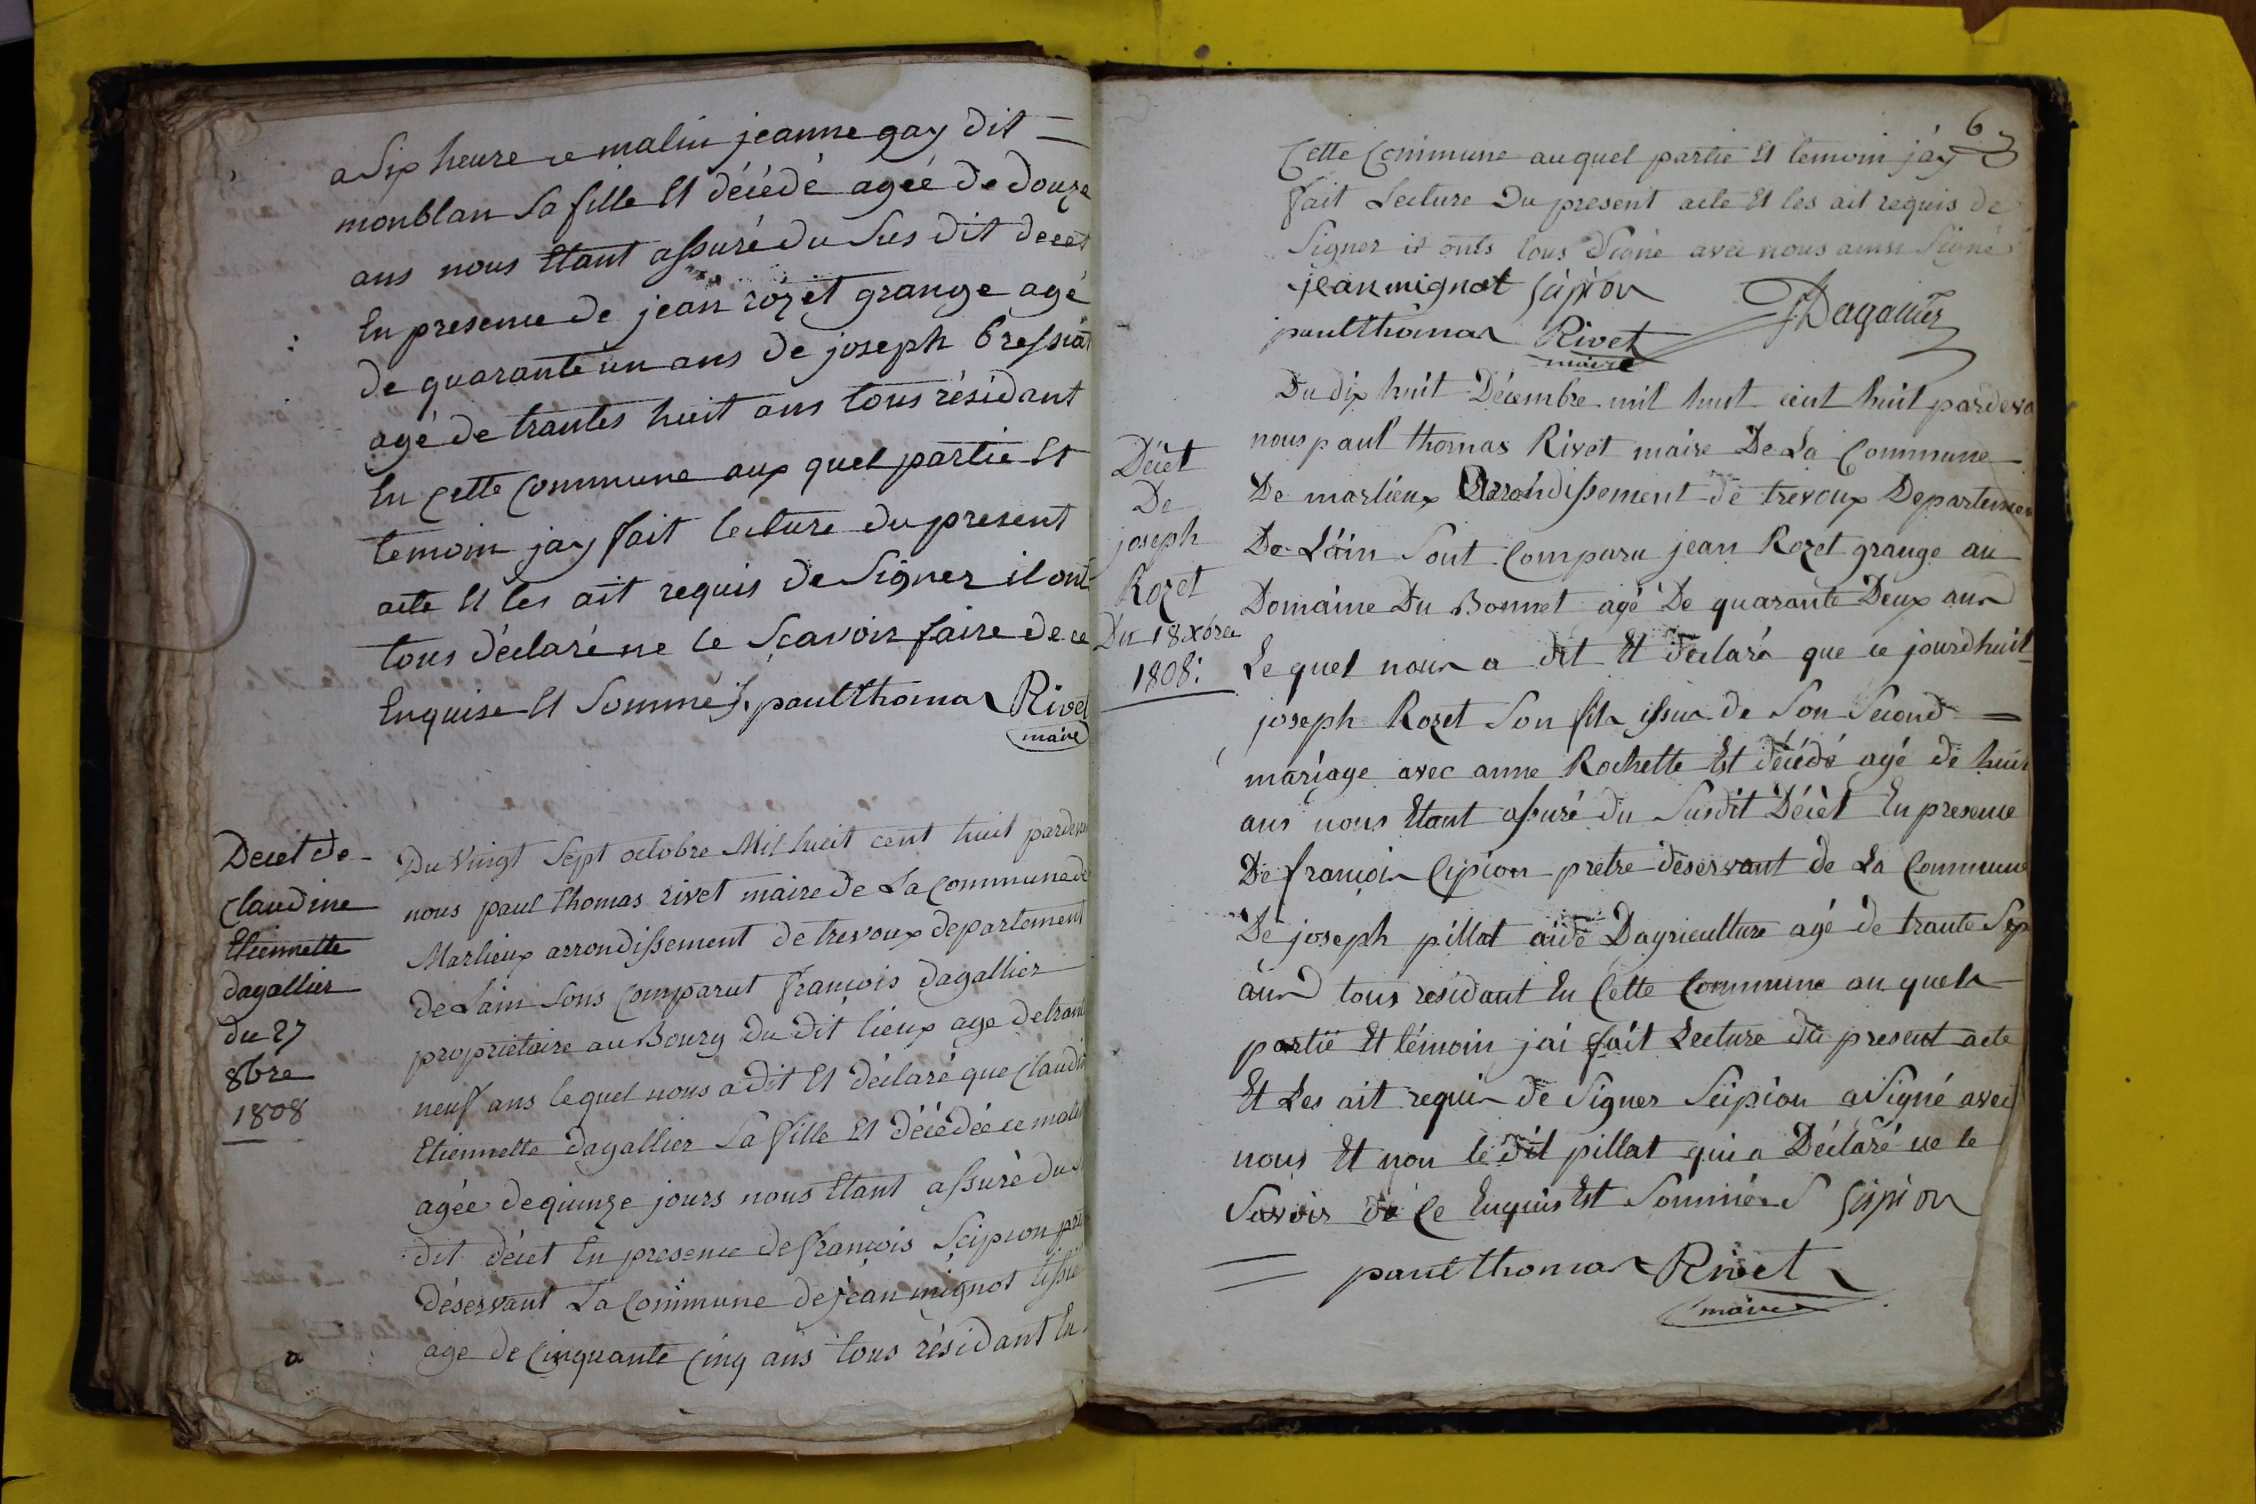 a Six heure ce matin jeanne gay dit =
monblan Sa fille Et décédé agéé de douze
ans nous Etant assuré du Sus dit decet
En presence de jean rozet grange agé
de quarante un ans de joseph bressiat
agé de trantes huit ans tous résidant
En Cette Commune aux quel partie Et
temoin jay fait lecture du present
acte Et les ait requis de Signer il ont
tous déclaré ne le Sçavoir faire de ce
Enquise Et Sommé paul thomas Rivet
maire
Decet de
Claudine
Etiennette
dagallier
du 27
8bre
1808
Du Vingt Sept octobre Mil huit cent huit pardevan
nous paul thomas rivet maire de La Commune de
Marlieux arrondissement de trevoux departement
de Lain Sons Comparut françois dagallier
proprietaire au Bourg Du Dit lieux age de trante
neuf ans lequel nous a dit Et déclaré que Claudin
Etiennette dagallier Sa fille Et décédée ce matin
agée de quinze jours nous Etant assuré du S
dit décet En presence de françois Scipion pret
déservant La Commune de jean mignot tissie
age de Cinquante Cinq ans tous résidant En
a
6
Cette Commune au quel partie Et temoin jáy
fait Lecture Du present acte Et les ait requis de
Signer il onts tous Signé avec nous ainsi Signé
jean mignot Scipion
Dagallier
paul thomas Rivet
maire
Décet
De
joseph
Rozet
Du 18 xbre
1808:
Du dix huit Décembre mil huit cent huit pardeva
nous paul thomas Rivet maire De La Commune
De marlieux Arrondissement de trevoux Departemen
De L'áin Sont Comparu jean Rozet grange au
Domaine Du Bonnet agé De quarante Deux ans
Le quel nous a dit Et declaré que ce jourdhuit
joseph Rozet Son fils issus de Son Second =
mariage avec anne Rochette Est décédé agé de huit
ans nous Etant assuré du Susdit Décèt En presence
De françois Cipion pretre déservant de La Commune
De joseph pillat aide Dagriculture agé de trante Sep
ans tous residant En Cette Commune au quels
partie Et témoin jai fait Lecture du present acte
Et Les ait requis de Signer Scipion a Signé avec
nous Et non le dit pillat qui a Déclaré ne le
Savoir de Ce Enquis Est Sommé Scipion
paul thomas Rivet
maire